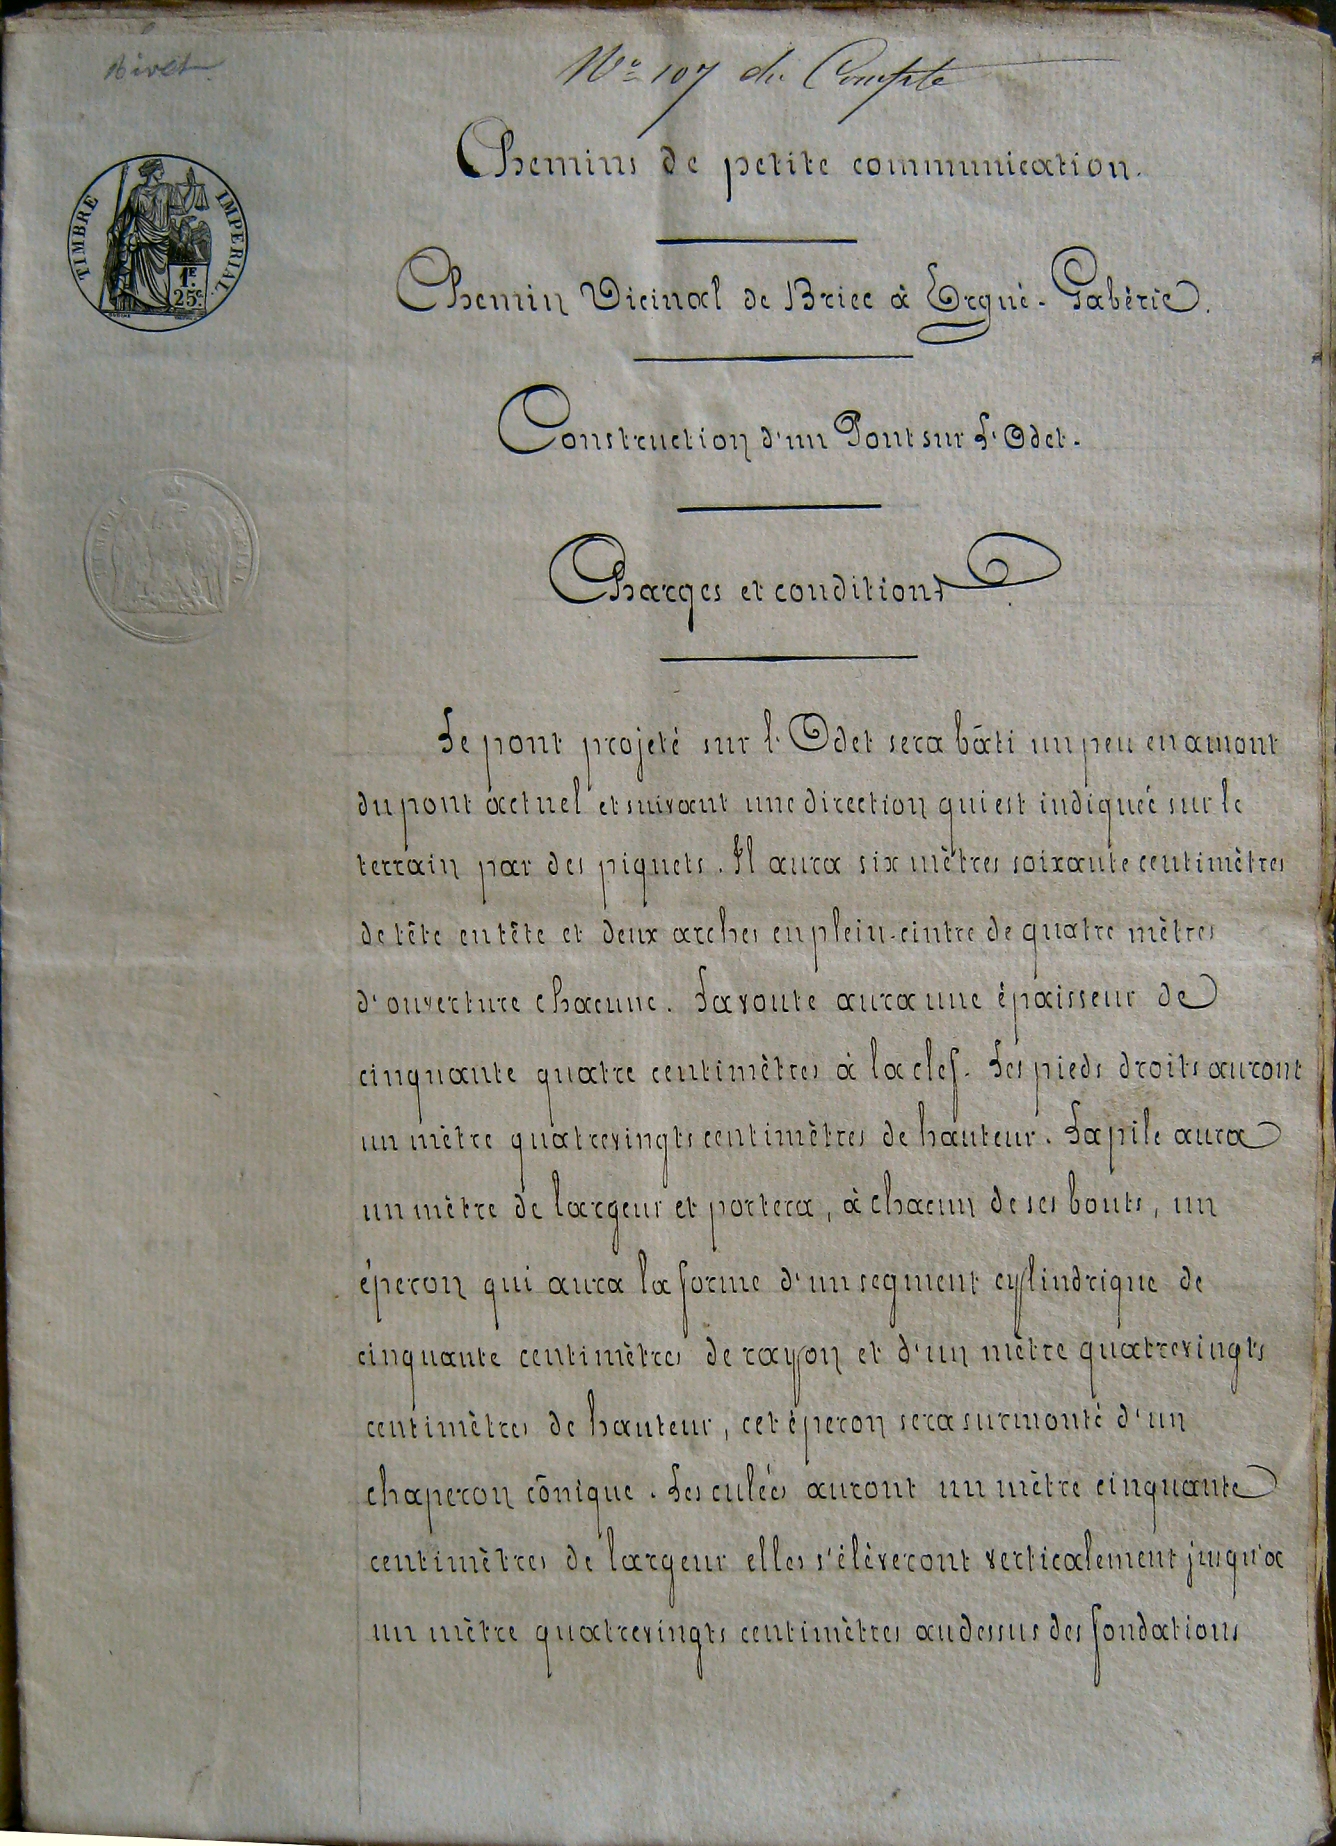 N° 107 du Compte
Chemins de petite communication.
TIMBRE IMPERIAL
1F
25c
Chemin Vicinal de Briec à Ergué-Gabéric.
Construction d'un Pont sur L'Odet.
Charges et conditions.
Le pont projeté sur l'Odet sera bâti un peu en amont
du pont actuel et suivant une direction qui est indiquée sur le
terrain par des piquets. Il aura six mètres soixante centimètres
de tête en tête et deux arches en plein-cintre de quatre mètres
d'ouverture chacune. La voute aura une épaisseur de
cinquante quatre centimètres à la clef. Les pieds droits auront
un mètre quatrevingts centimètres de hauteur. La pile aura
un mètre de largeur et portera, à chacun de ses bouts, un
éperon qui aura la forme d'un segment cylindrique de
cinquante centimètres de rayon et d'un mètre quatrevingts
centimètres de hauteur, cet éperon sera surmonté d'un
chaperon cônique. Les culées auront un mètre cinquante
centimètres de largeur elles s'élèveront verticalement jusqu'a
un mètre quatrevingts centimètres audessus des fondations